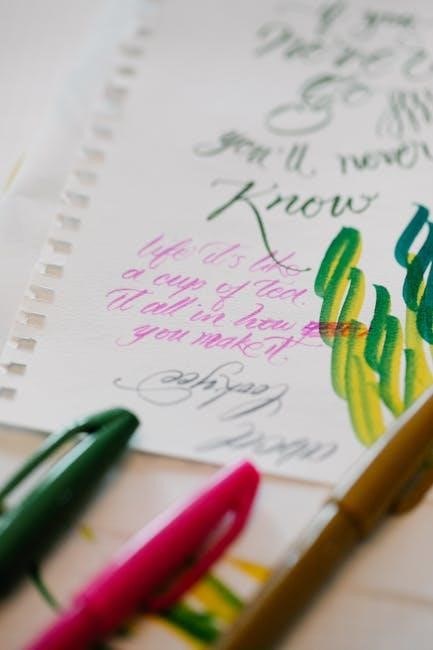 If you
never
Go
you'll never
Know
life it's like
a cup of tea.
it all in how
you make it.